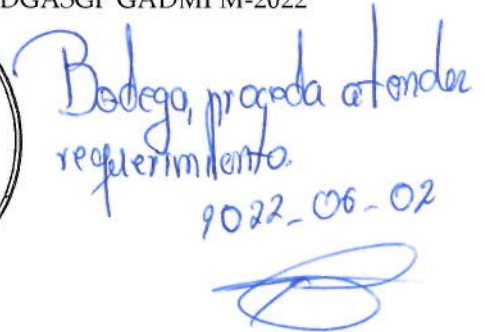 DGASGP-GADMPM-2022
Bodega, proceda atender
requerimiento.
2022-06-02